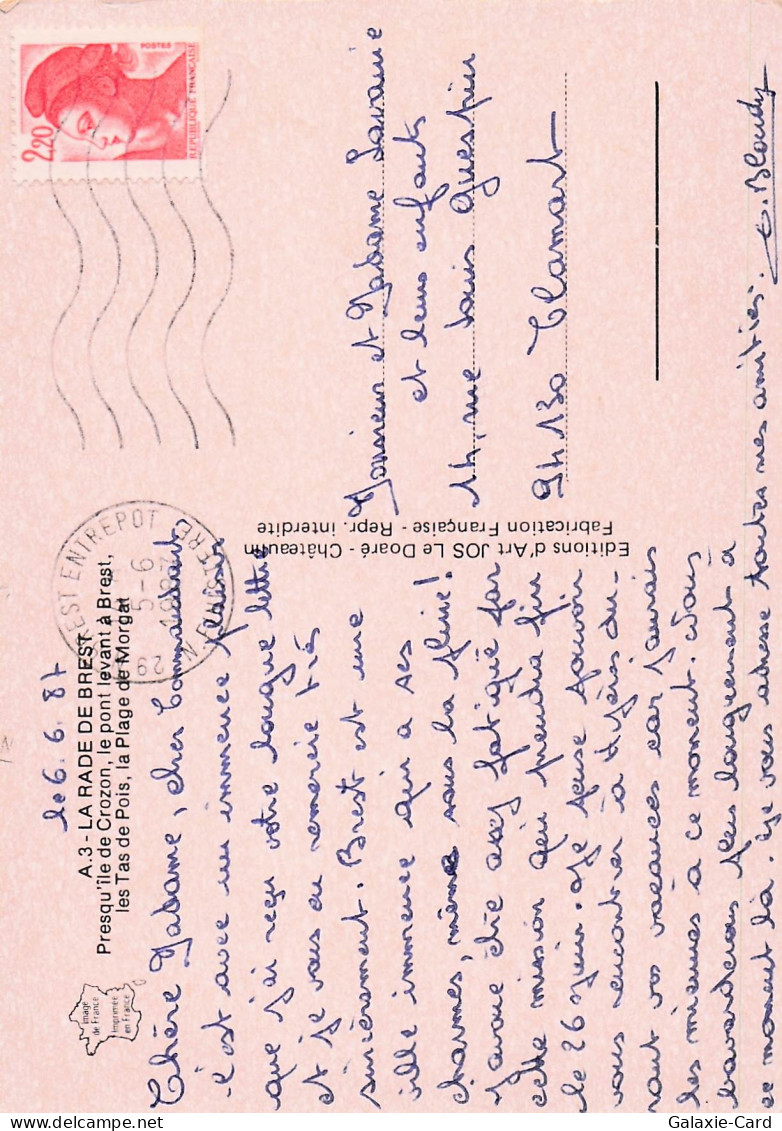 le 6.6.87
A.3 - LA RADE DE BREST
Presqu'île de Crozon, le pont levant à Brest,
les Tas de Pois, la Plage de Morgat
image
de France
Imprimée
en France
Chère Madame, cher Commandant
c'est avec un immence plaisir
que j'ai reçu votre longue lettre
et je vous en remercie très
sincèrement. Brest est une
ville immence qui a ses
charmes, même sous la pluie!
J'avoue être assez fatigué par
cette mission qui prendra fin
le 26 juin. Je pense pouvoir
vous rencontrer à Hyères du-
rant vos vacances car j'aurais
les miennes à ce moment. Nous
bavarderons plus longuement à
ce moment là. Je vous adresse toutes mes amitiés.
Editions d'Art JOS Le Doaré - Châteaulin
Fabrication Française - Repr. interdite
2,20
POSTES
REPUBLIQUE FRANÇAISE
BREST ENTREPOT
5-6
1987
29 N. FINISTERE
Monsieur et Madame
et leurs enfants
14, rue Louis Guespin
94130 Clamart
Galaxie-Card
© Galaxie-Card.com